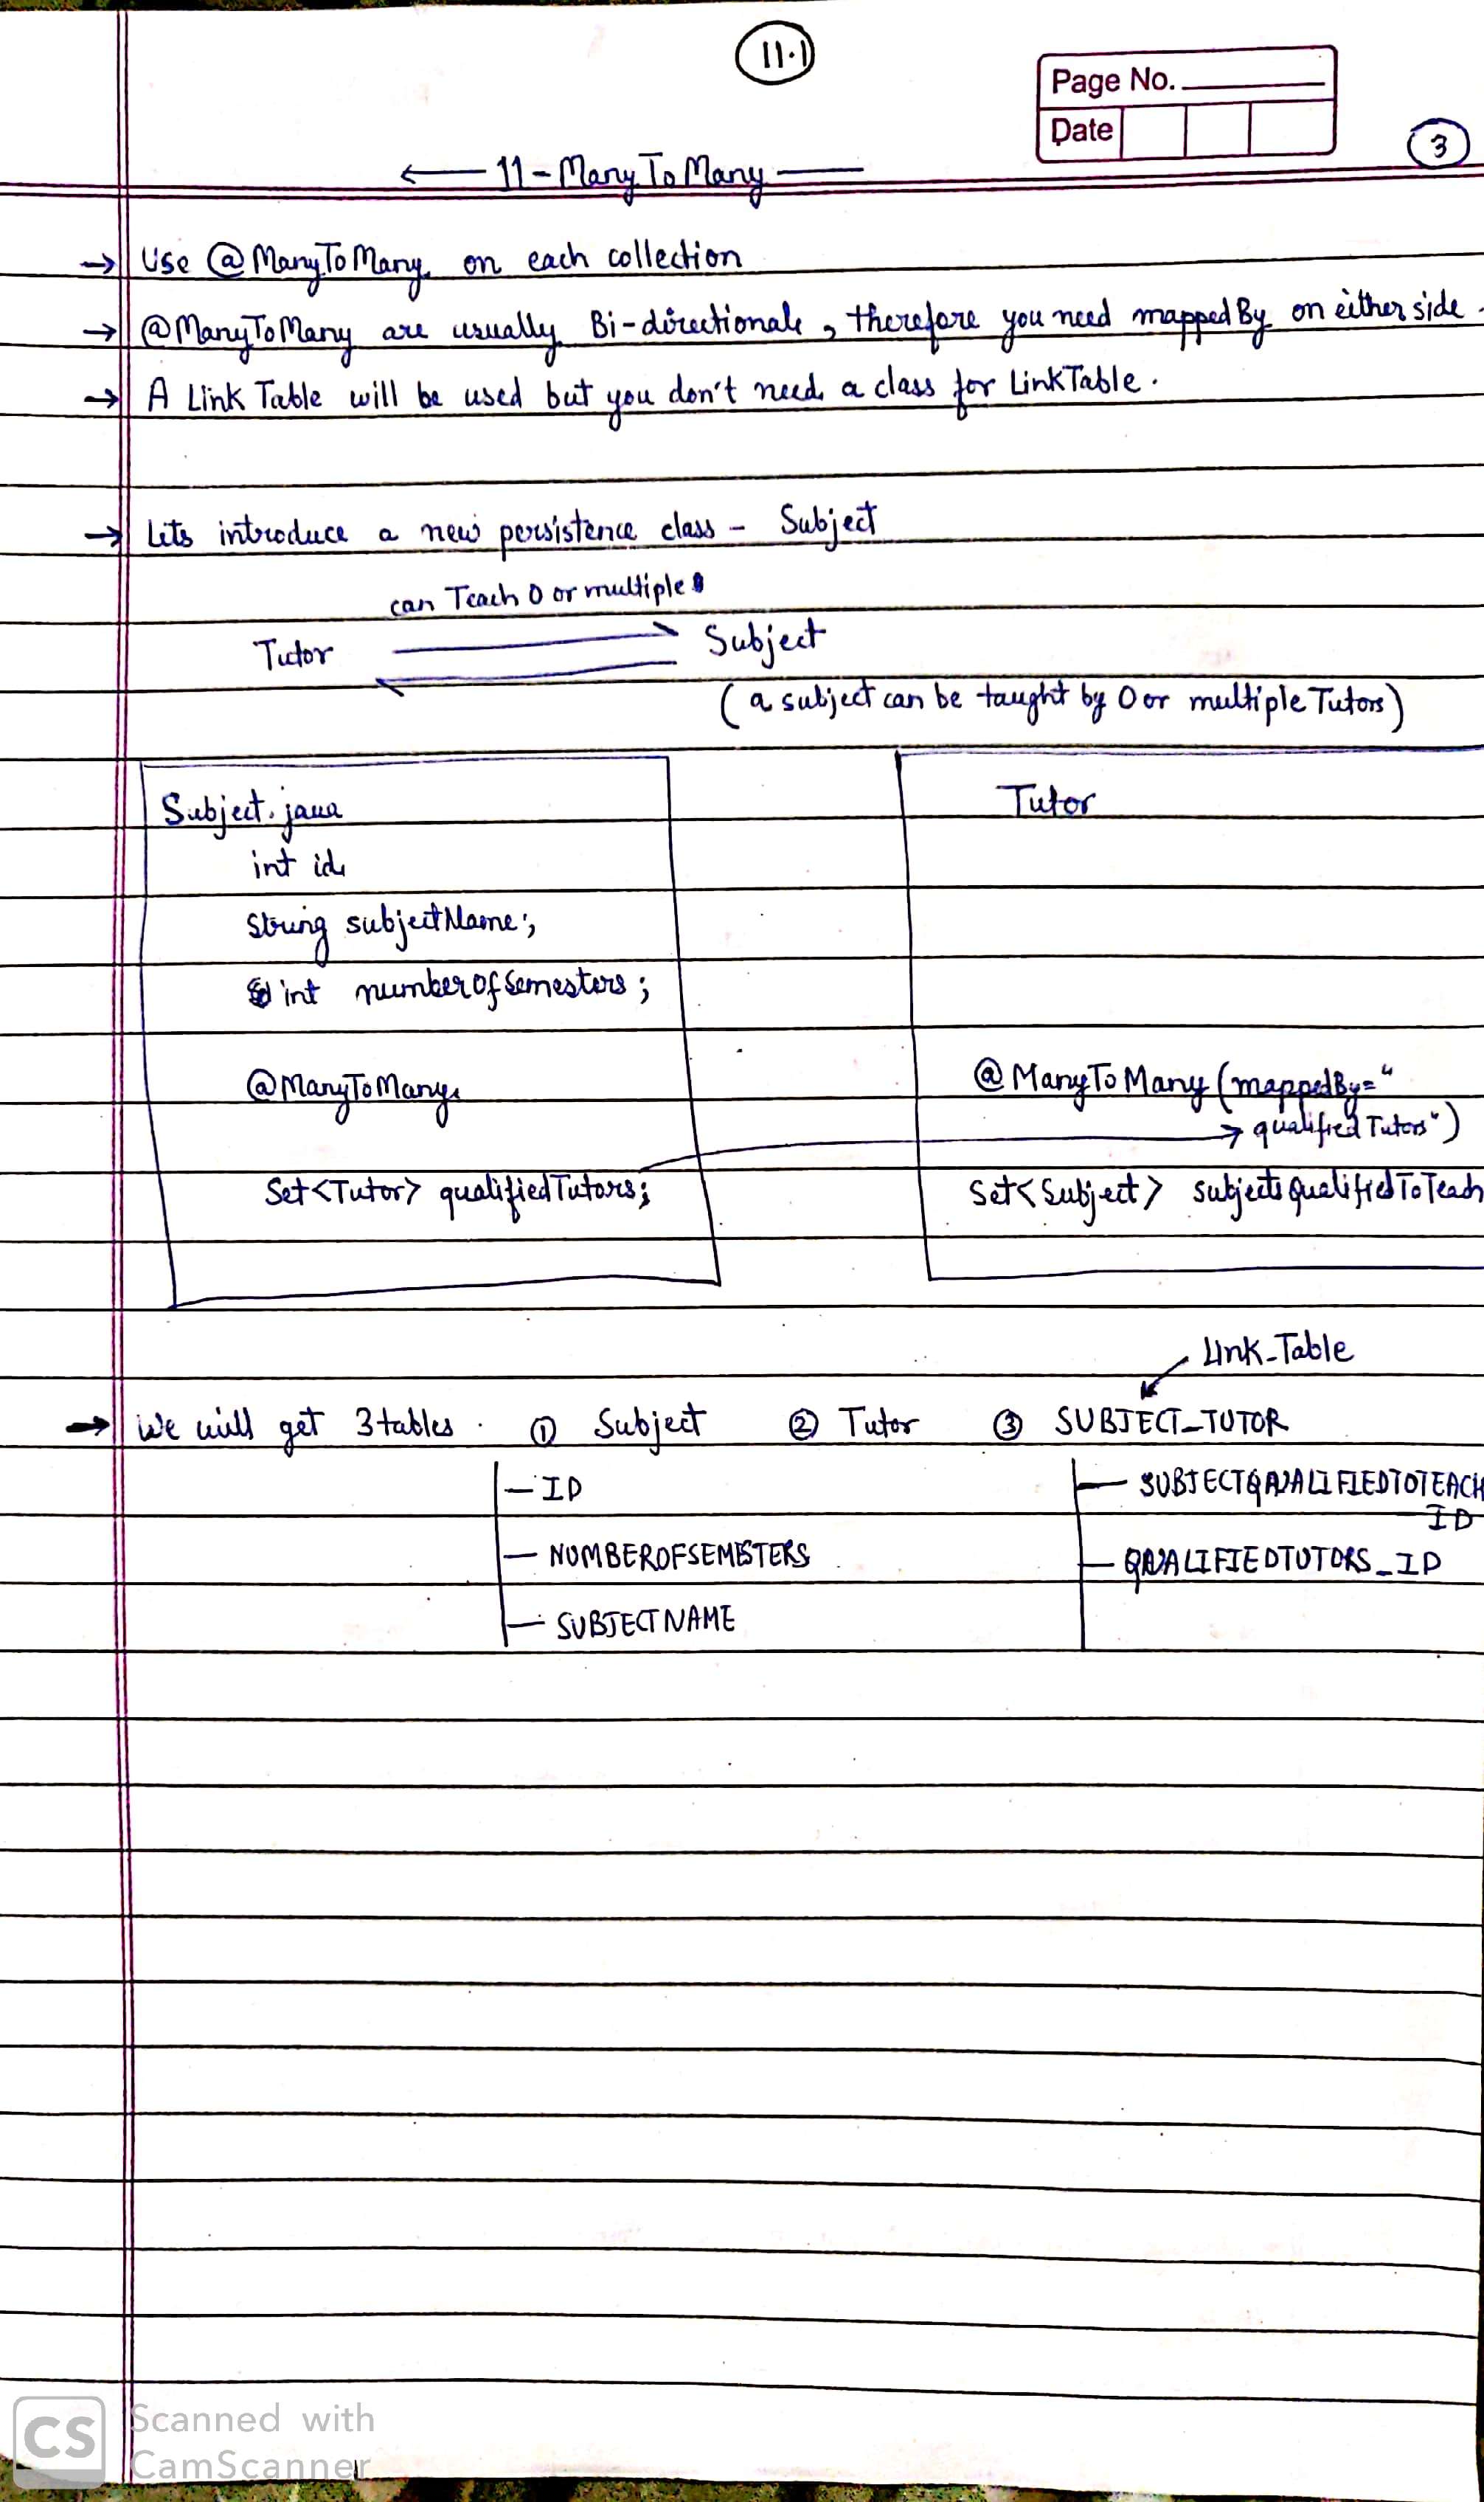 11.1
Page No.
Date
3
← 11 - ManyToMany
→ Use @ManyToMany on each collection
→ @ManyToMany are usually Bi-directionale, therefore you need mappedBy on either side.
→ A Link Table will be used but you don't need a class for LinkTable.
→ Lets introduce a new persistence class - Subject
can Teach 0 or multiple
Tutor Subject
(a subject can be taught by 0 or multiple Tutors)
Subject.java
int id
String subjectName;
int numberofSemesters;
@ManyToMany
Set<Tutor> qualifiedTutors;
Tutor
@ManyToMany (mappedBy="
→ qualifiedTutors")
Set<Subject> subjectsQualifiedToTeach
Link-Table
→ We will get 3 tables. ① Subject ② Tutor ③ SUBJECT_TUTOR
- ID
- NUMBEROFSEMESTERS
- SUBJECTNAME
- SUBJECTQUALIFIEDTOTEACH
ID
- QUALIFIEDTUTORS_ID
CS
Scanned with
CamScanner